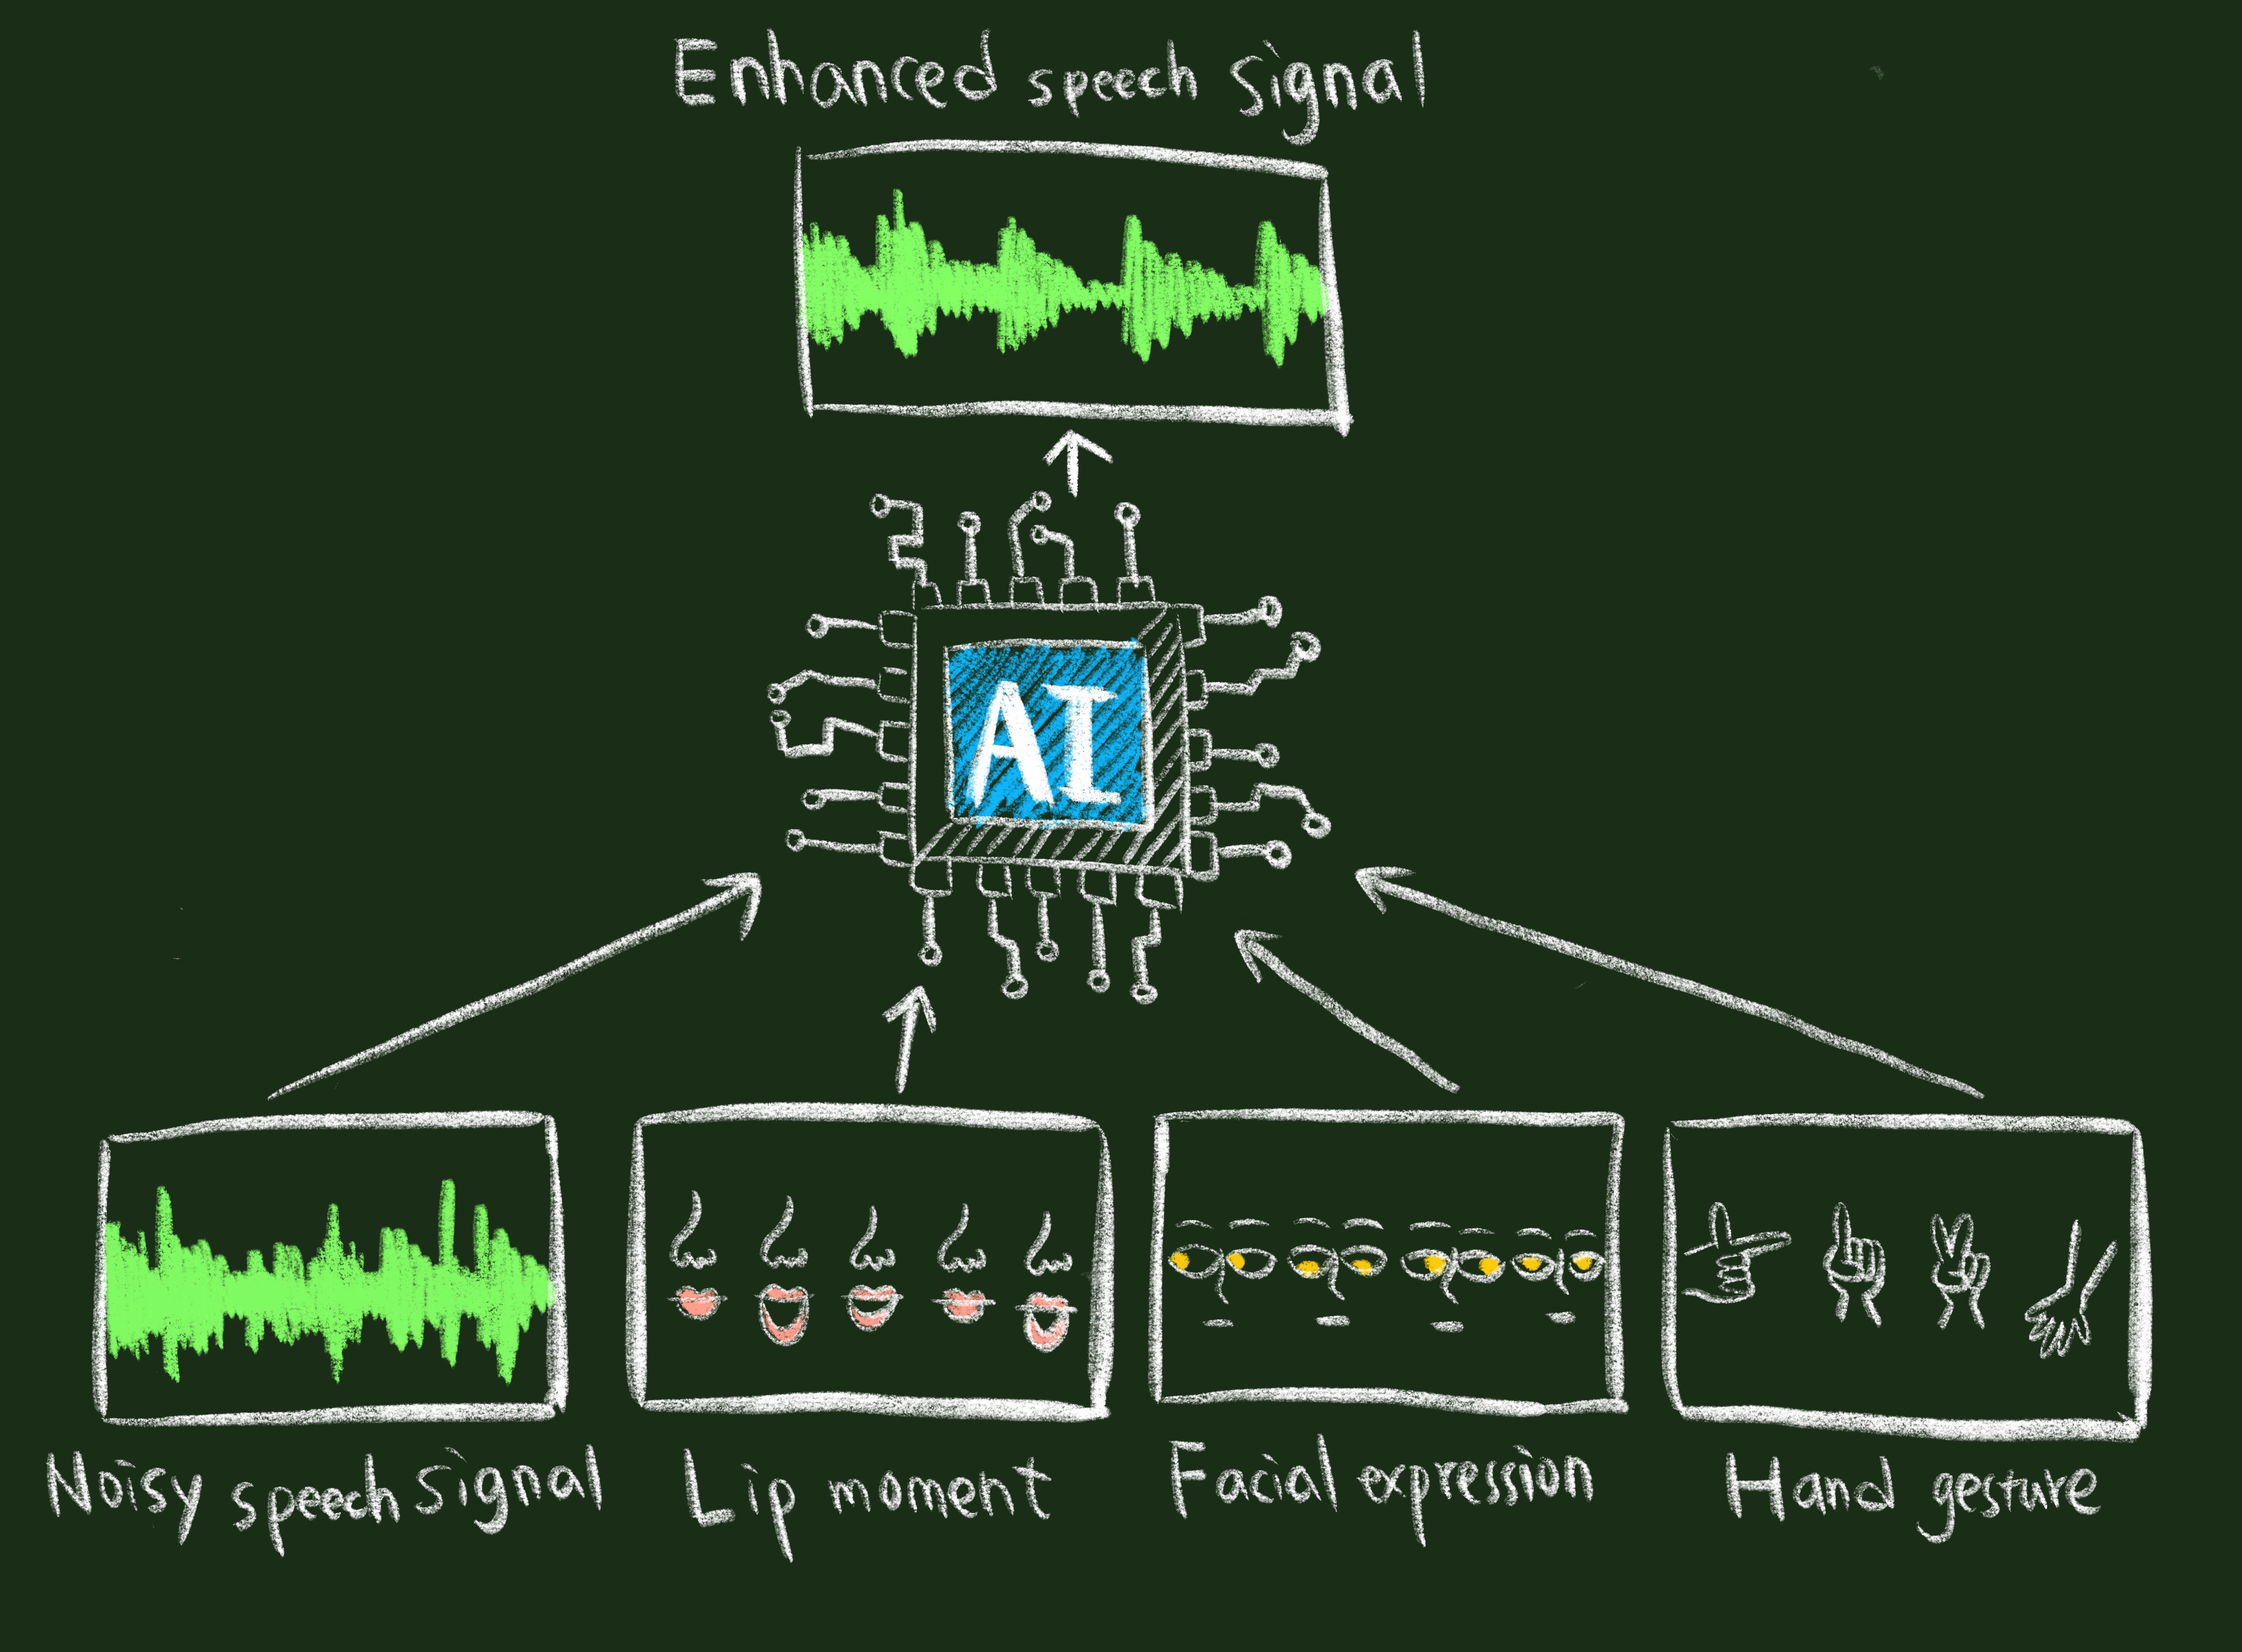 Enhanced speech signal
AI
Noisy speech signal
Lip moment
Facial expression
Hand gesture